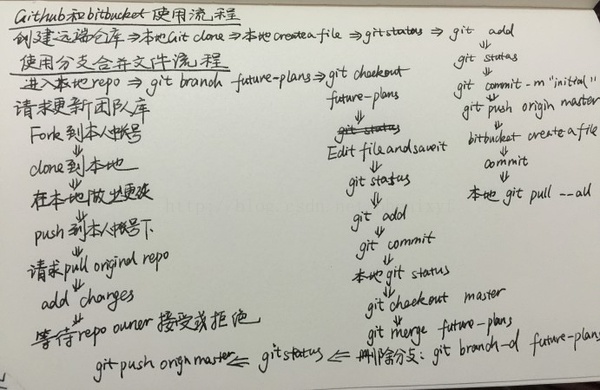 Github和bitbucket使用流程
创建远端仓库⇒本地Git clone⇒本地create a file⇒git status⇒ git add
⇓
git status
⇓
git commit -m "initial"
⇓
git push origin master
⇓
bitbucket create a file
⇓
commit
⇓
本地 git pull --all
使用分支合并文件流程
进入本地repo ⇒ git branch future-plans⇒git checkout future-plans
⇓
git status
Edit file and save it
⇓
git status
⇓
git add
⇓
git commit
⇓
本地git status
⇓
git checkout master
⇓
git merge future-plans
⇓
删除分支: git branch -d future-plans
⇐ git status
⇐ git push origin master
请求更新团队库
Fork到本人帐号
⇓
clone到本地
⇓
在本地做出更改
⇓
push到本人帐号下
⇓
请求pull original repo
⇓
add changes
⇓
等待repo owner 接受或拒绝